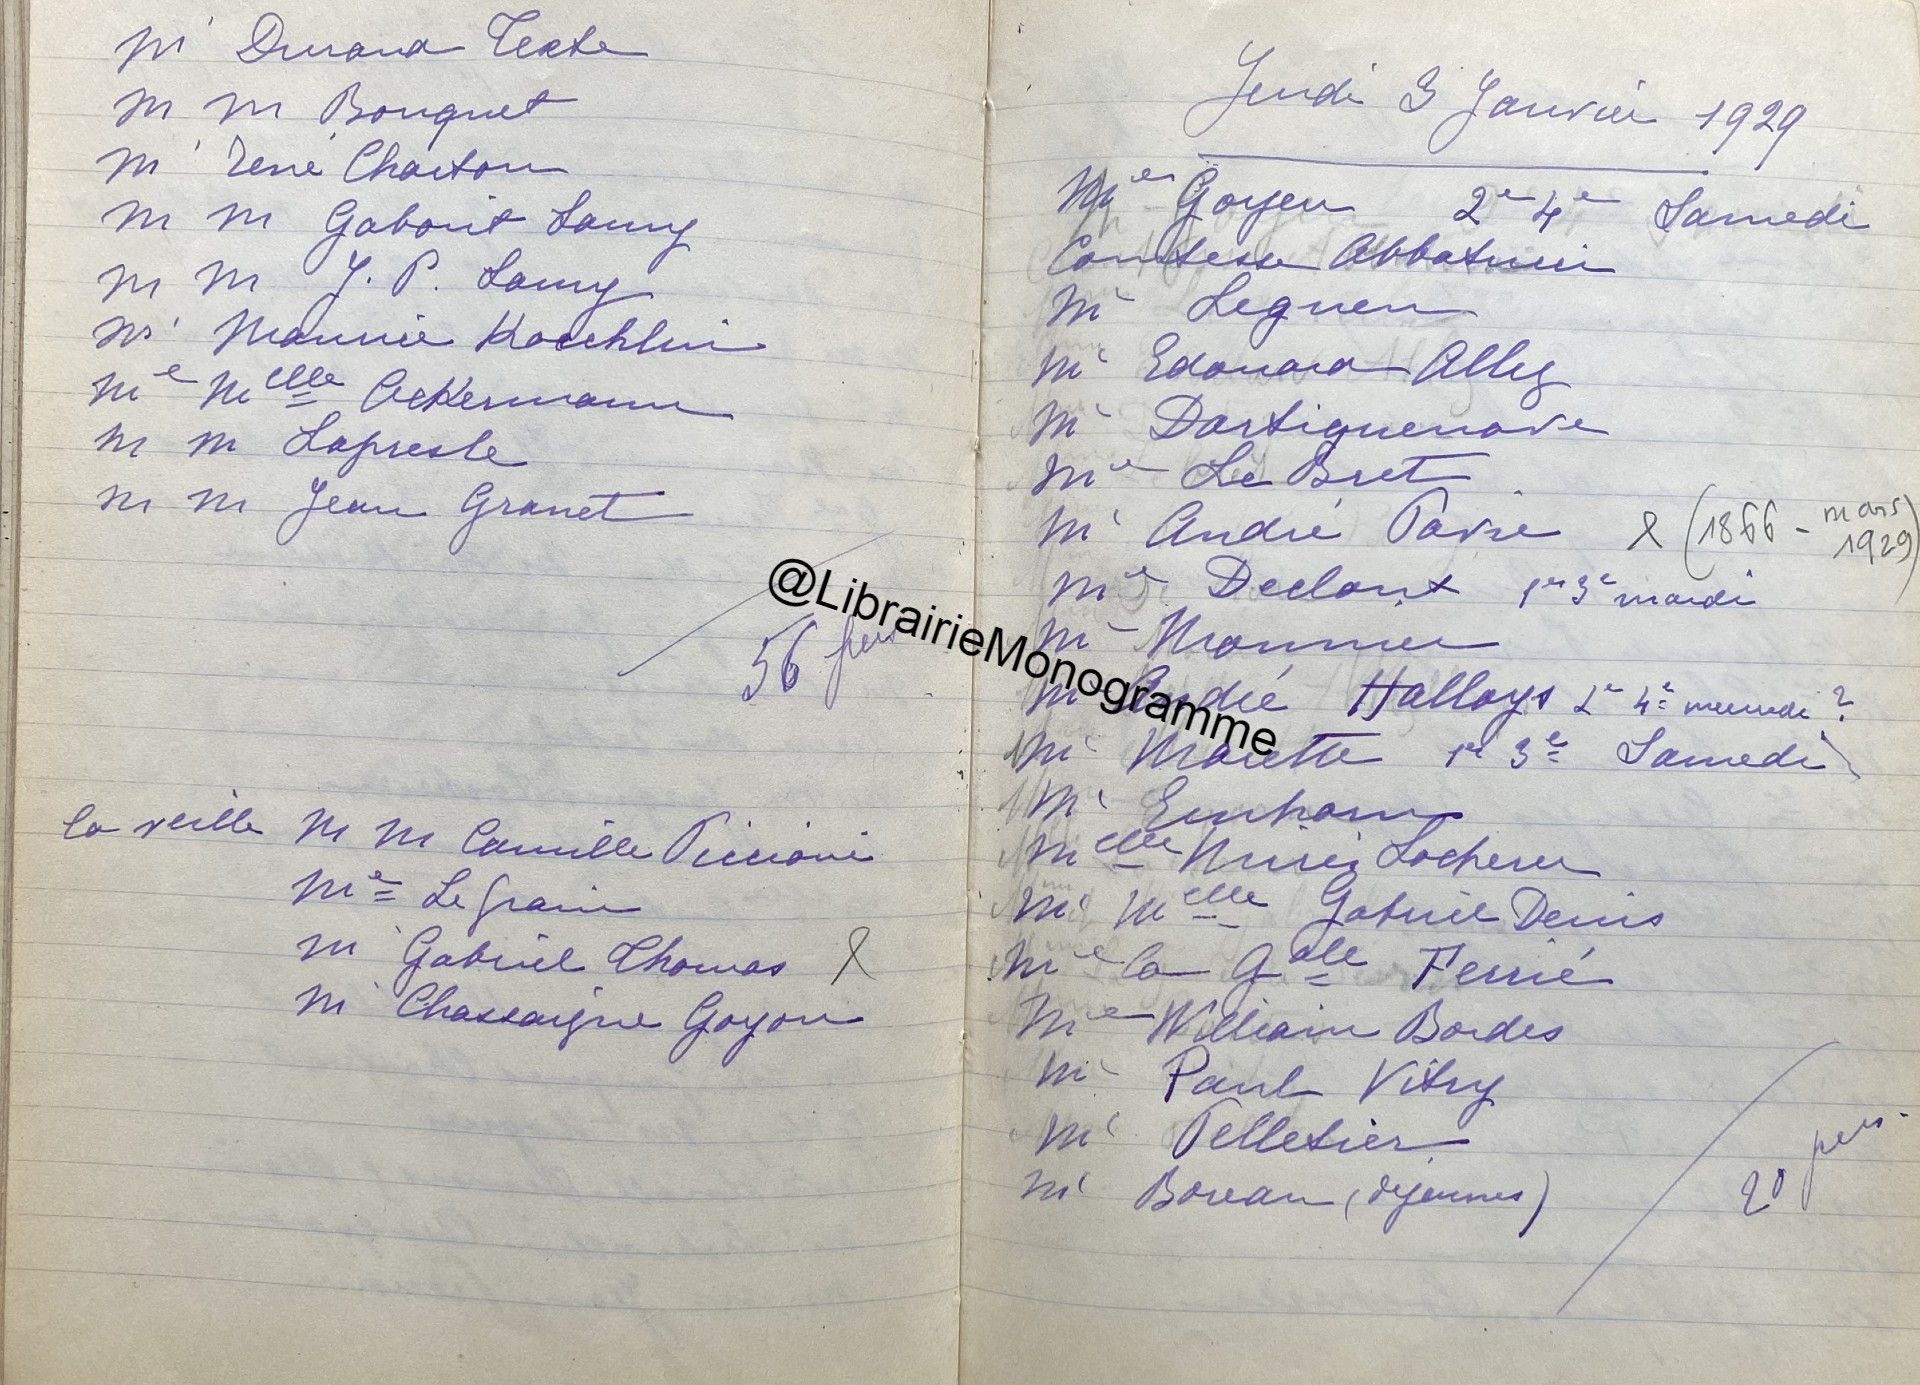 Mr Durand Texte
M M Bouquet
Mr René Charton
M M Gaborit Lamy
M M J. P. Lamy
Mr Maurice Koechlin
Me Melle Ackermann
M M Lapresle
M M Jean Granet
56 pers
la veille M M Camille Piccioni
Me Legrain
Mr Gabriel Thomas
Mr Chassaigne Goyon
Jeudi 3 Janvier 1929
Me Goyen 2e 4e Samedi
Comtesse Abbatucci
Mr Leguen
Mr Edouard Alby
Mr Dartiguenave
Me Le Bret
Mr André Pavie (1866 - mars 1929)
Me Declont 1er 3e mardi
Mr Monnier
Mr André Hallays 2e 4e mercredi ?
Mr Marette 1er 3e Samedi
Mr
Melle Locherer
Mr Melle Gabriel Denis
Me la Gale Ferrié
Me William Bordes
Mr Paul Vitry
Mr Pelletier
Mr Boreau
20 pers.
@LibrairieMonogramme